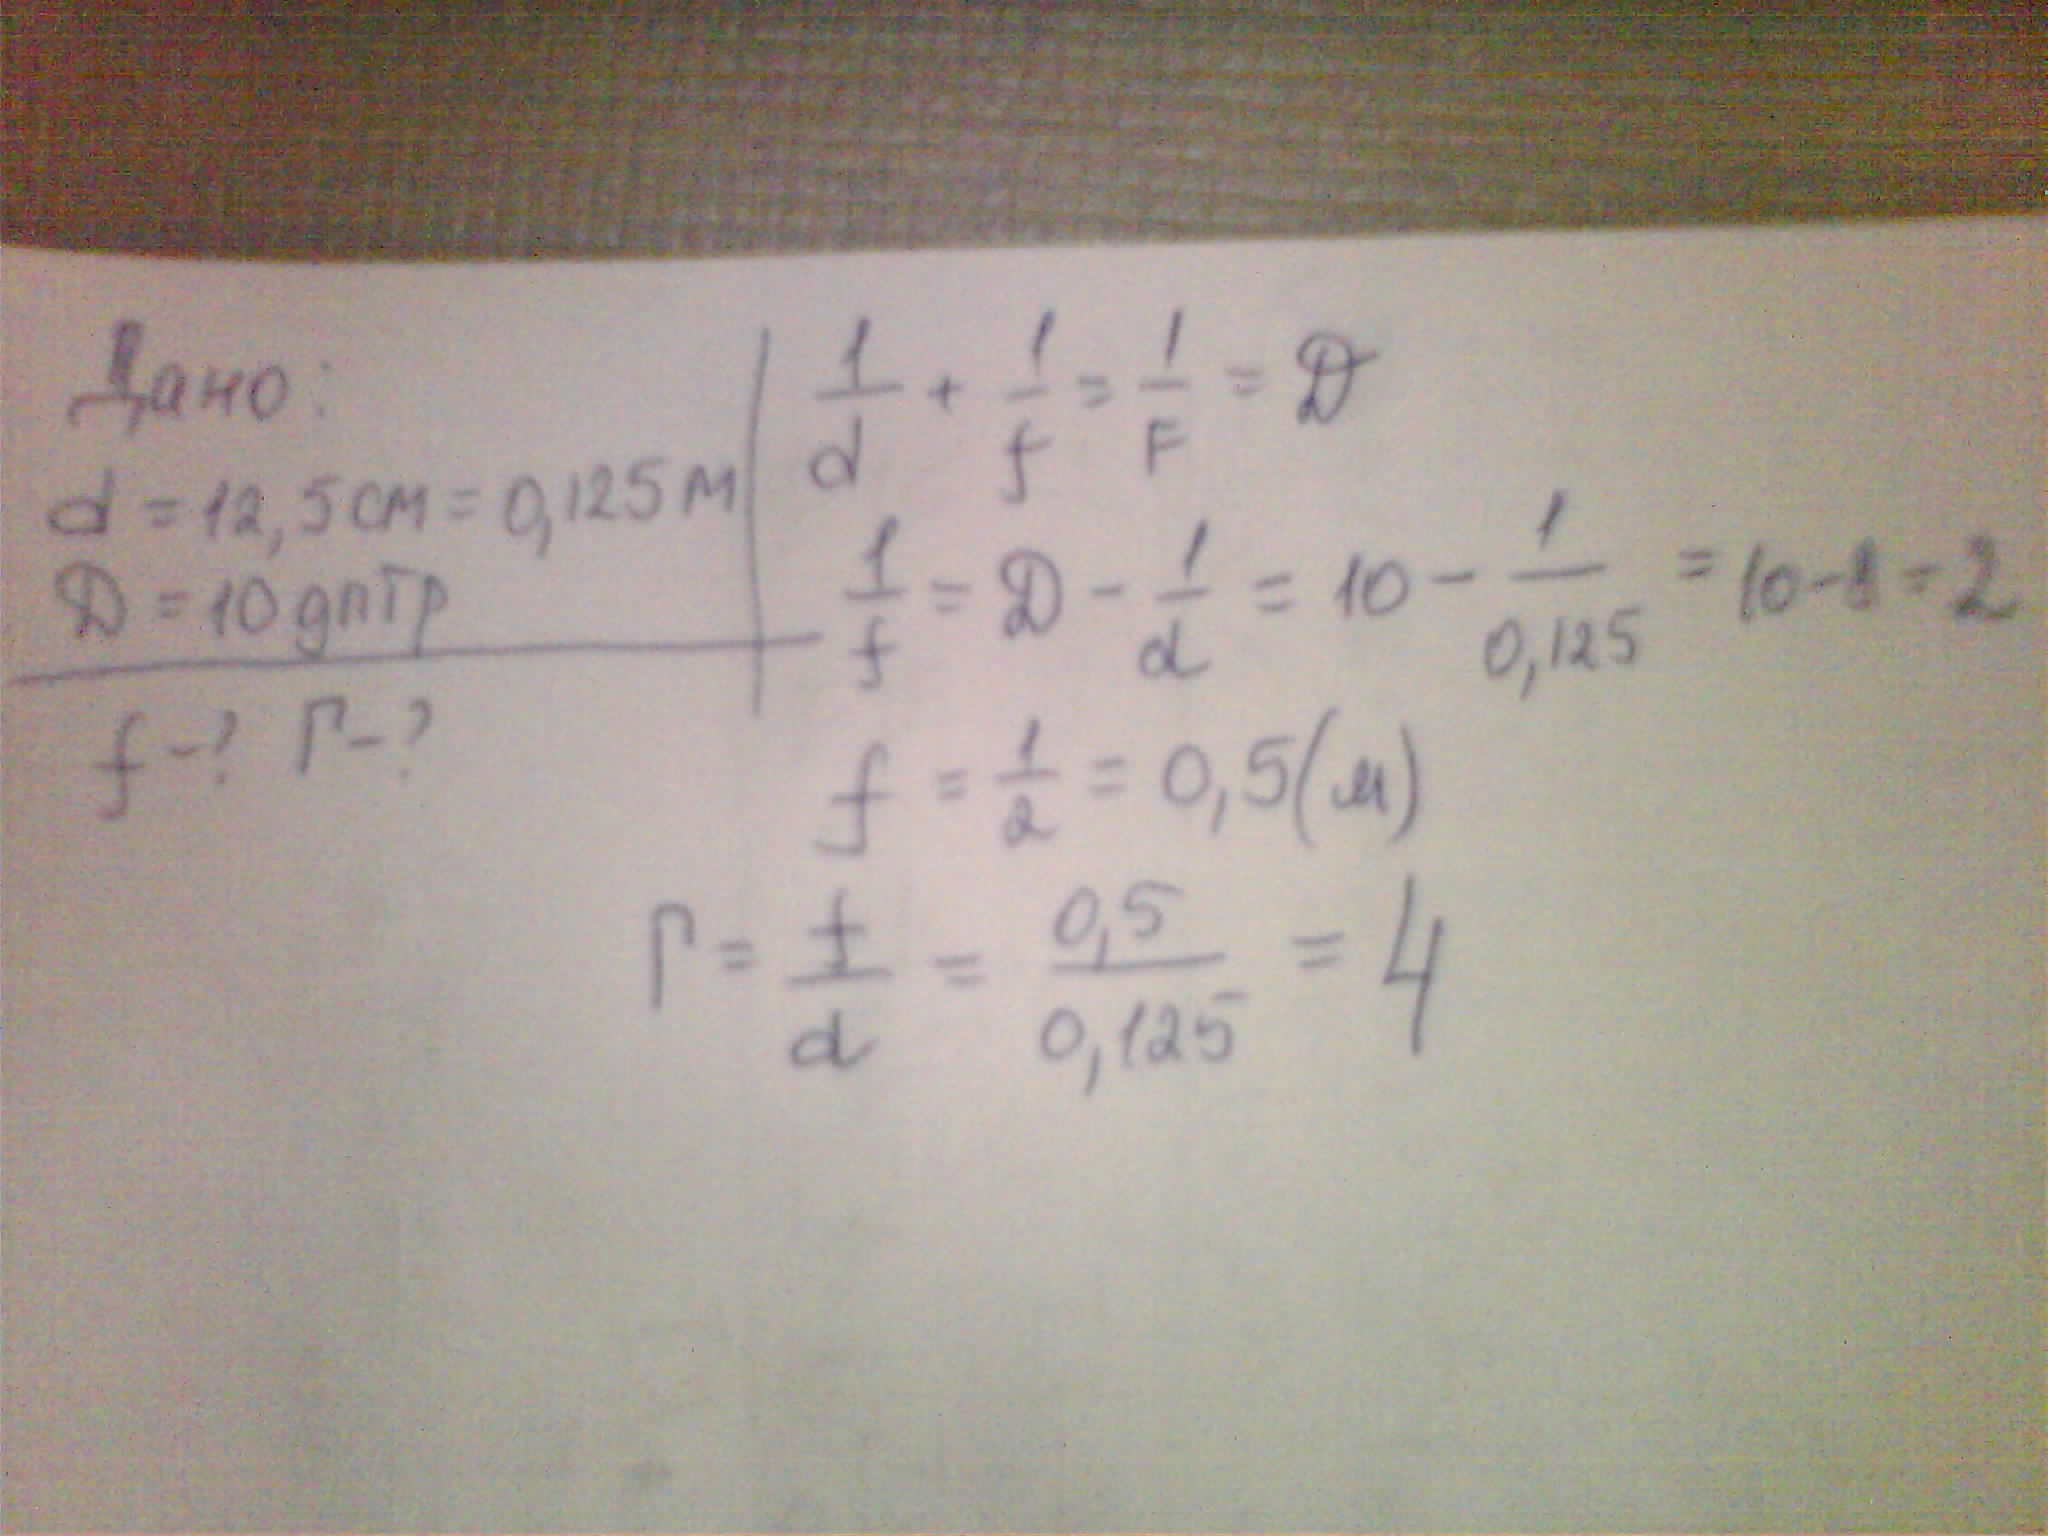 Дано:
d = 12,5 см = 0,125 м
D = 10 дптр
f - ? Г - ?
1/d + 1/f = 1/F = D
1/f = D - 1/d = 10 - 1/0,125 = 10 - 8 = 2
f = 1/2 = 0,5 (м)
Г = f/d = 0,5/0,125 = 4